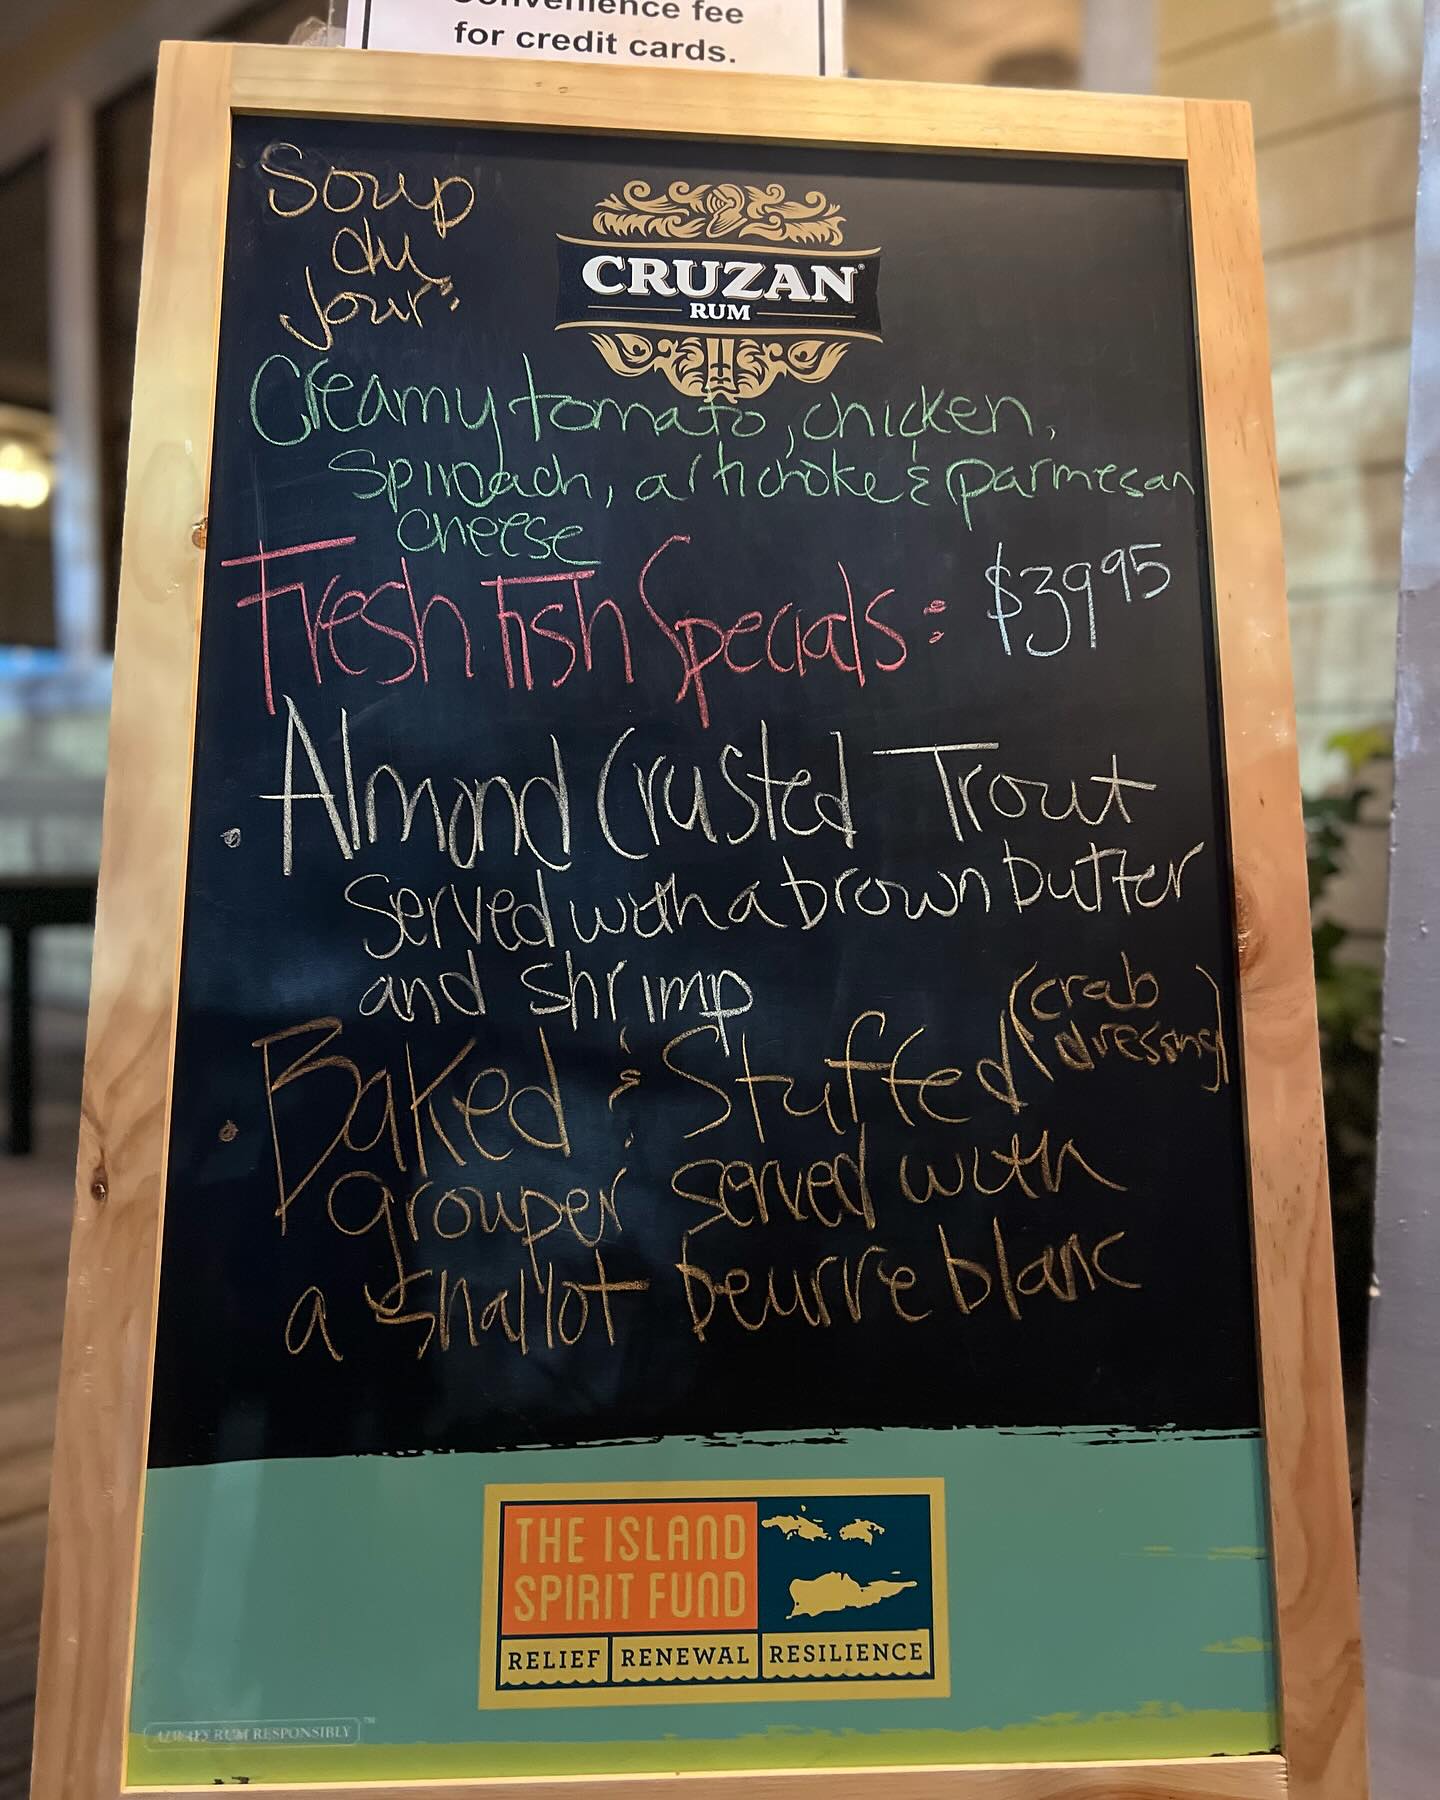 Convenience fee
for credit cards.
Soup
du
Jour:
CRUZAN®
RUM
Creamy tomato, chicken,
Spinach, artichoke & parmesan
cheese
Fresh Fish Specials: $39.95
• Almond Crusted Trout
served with a brown butter
and shrimp
• Baked & Stuffed (crab
dressing)
grouper served with
a shallot beurre blanc
THE ISLAND
SPIRIT FUND
RELIEF RENEWAL RESILIENCE
ALWAYS RUM RESPONSIBLY™